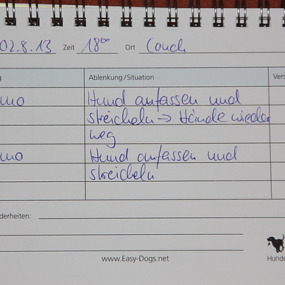 02.8.13 Zeit 18⁰⁰ Ort Couch
g Ablenkung/Situation Ver
mo Hund anfassen und
streicheln → Hände wieder
weg
mo Hund anfassen und
streicheln
derheiten:
www.Easy-Dogs.net Hunde